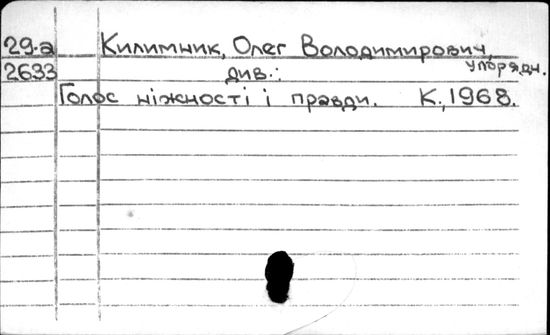 29-а Килимник, Олег Володимирович,
упорядн.
2633 див.:
Голос ніжності і правди. К., 1968.